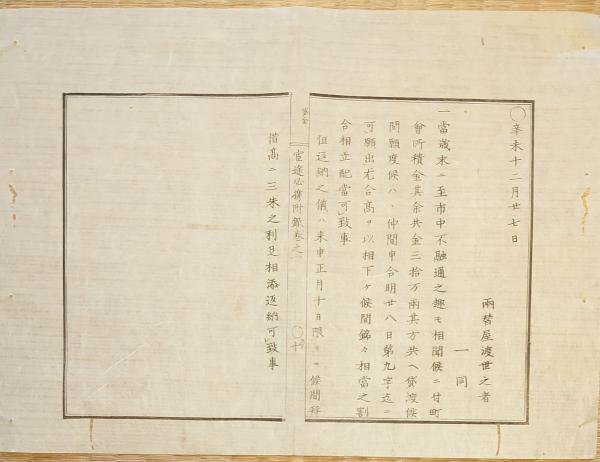 〇辛未十二月廿七日
両替屋渡世之者
一同
一當歳末ニ至市中不融通之趣モ相聞候ニ付町
會所積金其余共金三拾万兩其方共ヘ貸渡候
間願度候ハ、仲間申合明廿八日第九字迄ニ
可願出尤合高ヲ以相下ケ候間銘々相當之割
合相立配當可致事
但返納之儀ハ来申正月十日限 候間拜
借高ニ三朱之利足相添返納可致事
貸金
官途必携附録巻之一
〇十